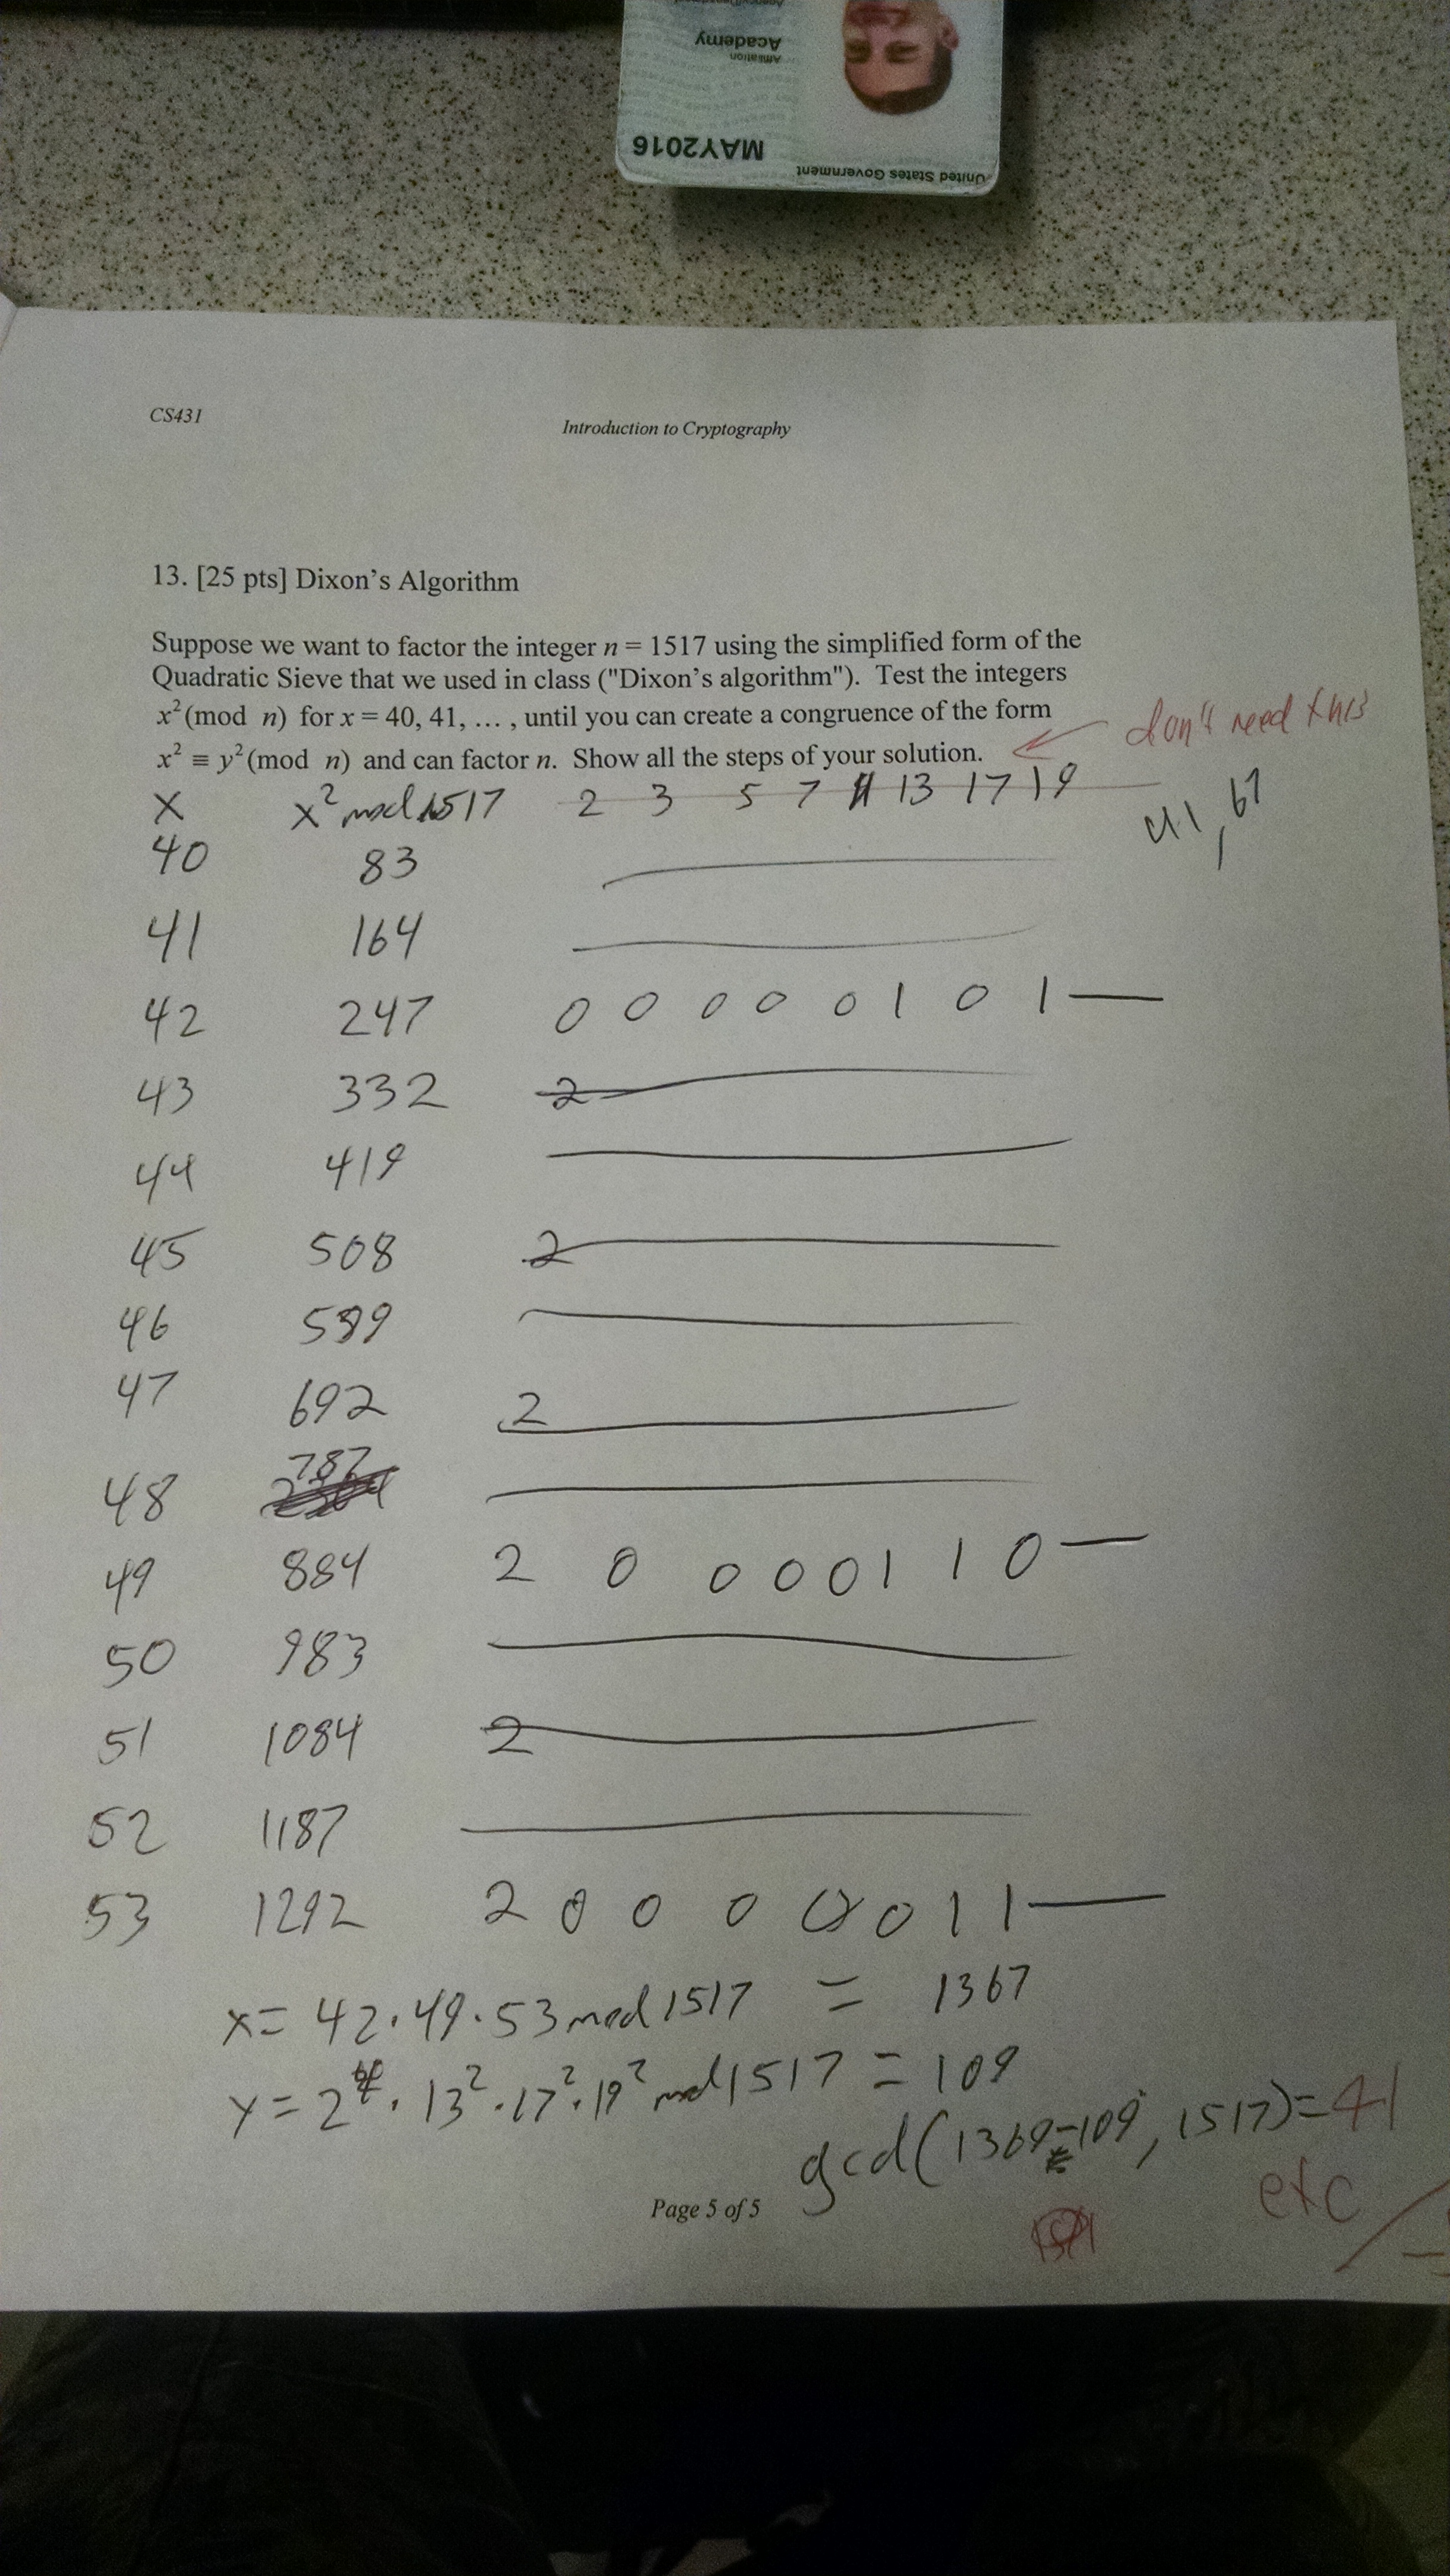 Affiliation
Academy
MAY2016
United States Government
CS431
Introduction to Cryptography
13. [25 pts] Dixon's Algorithm
Suppose we want to factor the integer n = 1517 using the simplified form of the
Quadratic Sieve that we used in class ("Dixon's algorithm"). Test the integers
x² (mod n) for x = 40, 41, … , until you can create a congruence of the form
x² ≡ y² (mod n) and can factor n. Show all the steps of your solution.
don't need this
x x² mod 1517 2 3 5 7 11 13 17 19
41, 67
40 83
41 164
42 247 0 0 0 0 0 1 0 1
43 332 2
44 419
45 508 2
46 599
47 692 2
48 787
49 884 2 0 0 0 0 1 1 0
50 983
51 1084 2
52 1187
53 1292 2 0 0 0 0 0 1 1
x = 42 · 49 · 53 mod 1517 = 1367
y = 2 · 13² · 17² · 19² mod 1517 = 109
gcd(1369-109, 1517) = 41
etc
Page 5 of 5